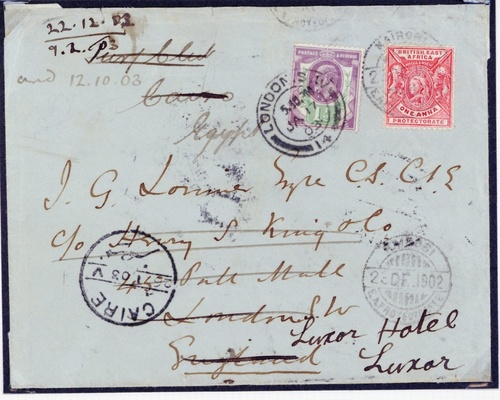 22.12.02
9.2.03
and 12.10.03
Turf Club
Cairo
Egypt
POSTAGE & REVENUE
LONDON
14
NAIROBI
BRITISH EAST
AFRICA
ONE ANNA
PROTECTORATE
J. G. Lorimer Esqre C.S. C.I.E
c/o Henry S. King & Co
Pall Mall
London SW
England
Luxor Hotel
Luxor
CAIRE
V
1902